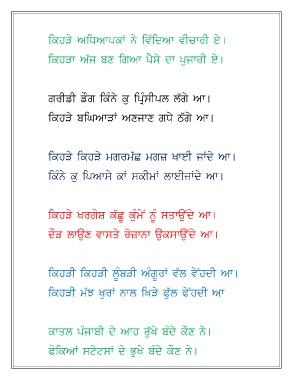 ਕਿਹੜੇ ਅਧਿਆਪਕਾਂ ਨੇ ਵਿੱਦਿਆ ਵੀਚਾਰੀ ਏ।
ਕਿਹੜਾ ਅੱਜ ਬਣ ਗਿਆ ਪੈਸੇ ਦਾ ਪੁਜਾਰੀ ਏ।
ਗਰੀਡੀ ਡੌਗ ਕਿੰਨੇ ਕੁ ਪ੍ਰਿੰਸੀਪਲ ਲੱਗੇ ਆ।
ਕਿਹੜੇ ਬਘਿਆੜਾਂ ਅਣਜਾਣ ਗਧੇ ਠੱਗੇ ਆ।
ਕਿਹੜੇ ਕਿਹੜੇ ਮਗਰਮੱਛ ਮਗਜ਼ ਖਾਈ ਜਾਂਦੇ ਆ।
ਕਿੰਨੇ ਕੁ ਪਿਆਸੇ ਕਾਂ ਸਕੀਮਾਂ ਲਾਈਜਾਂਦੇ ਆ।
ਕਿਹੜੇ ਖਰਗੋਸ਼ ਕੱਛੂ ਕੁੰਮੇਂ ਨੂੰ ਸਤਾਉਂਦੇ ਆ।
ਦੌੜ ਲਾਉਣ ਵਾਸਤੇ ਰੋਜ਼ਾਨਾ ਉਕਸਾਉਂਦੇ ਆ।
ਕਿਹੜੀ ਕਿਹੜੀ ਲੂੰਬੜੀ ਅੰਗੂਰਾਂ ਵੱਲ ਵੇਂਹਦੀ ਆ।
ਕਿਹੜੀ ਮੱਝ ਖੁਰਾਂ ਨਾਲ ਖਿੜੇ ਫੁੱਲ ਫੇਂਹਦੀ ਆ
ਕਾਤਲ ਪੰਜਾਬੀ ਦੇ ਆਹ ਰੁੱਖੇ ਬੰਦੇ ਕੌਣ ਨੇ।
ਫੋਕਿਆਂ ਸਟੇਟਸਾਂ ਦੇ ਭੁਖੇ ਬੰਦੇ ਕੌਣ ਨੇ।